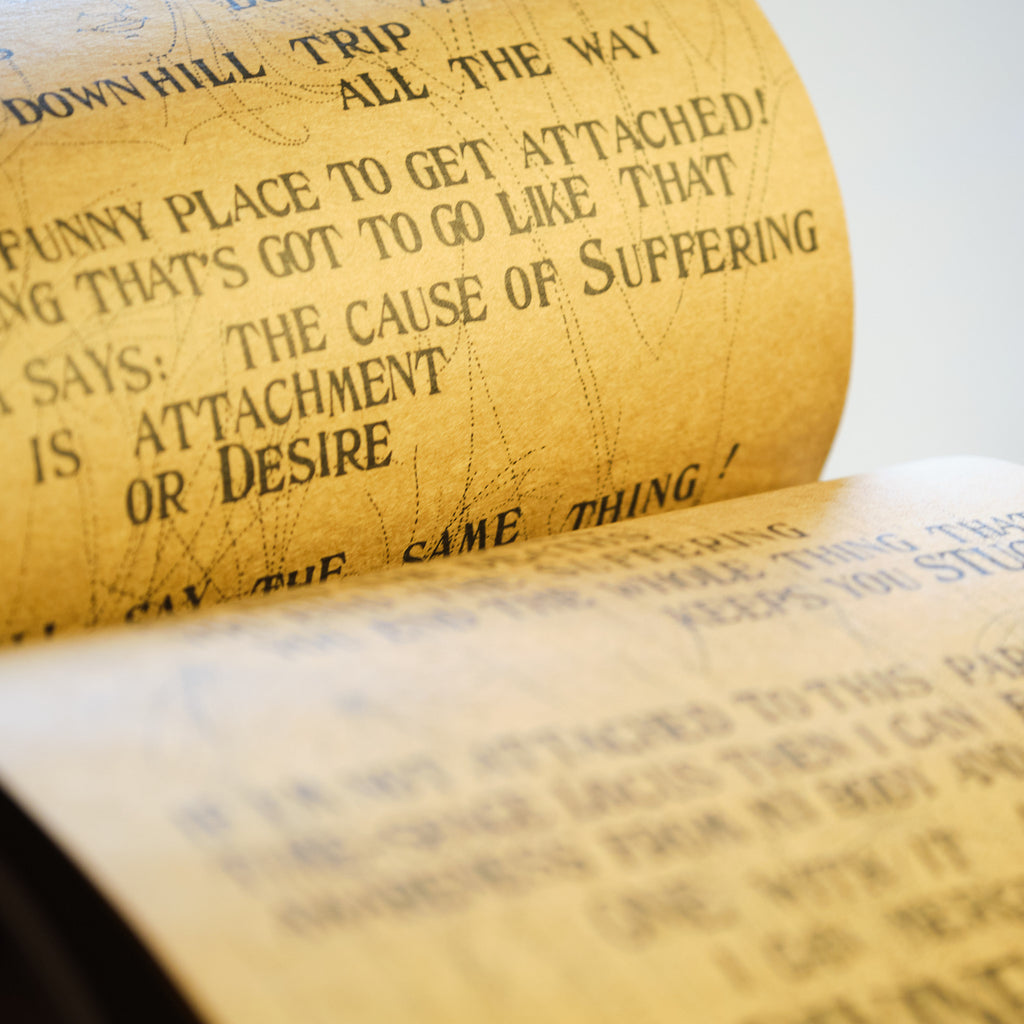 DOWNHILL TRIP
ALL THE WAY
FUNNY PLACE TO GET ATTACHED!
NG THAT'S GOT TO GO LIKE THAT
SAYS: THE CAUSE OF SUFFERING
IS ATTACHMENT
OR DESIRE
SAY THE SAME THING!
SUFFERING
AND THE WHOLE THING THAT
KEEPS YOU STUC
NOT ATTACHED TO THIS PAR
TIME-SPACE LOCUS THEN I CAN
AWARENESS FROM MY BODY AND
ONE WITH IT
I CAN